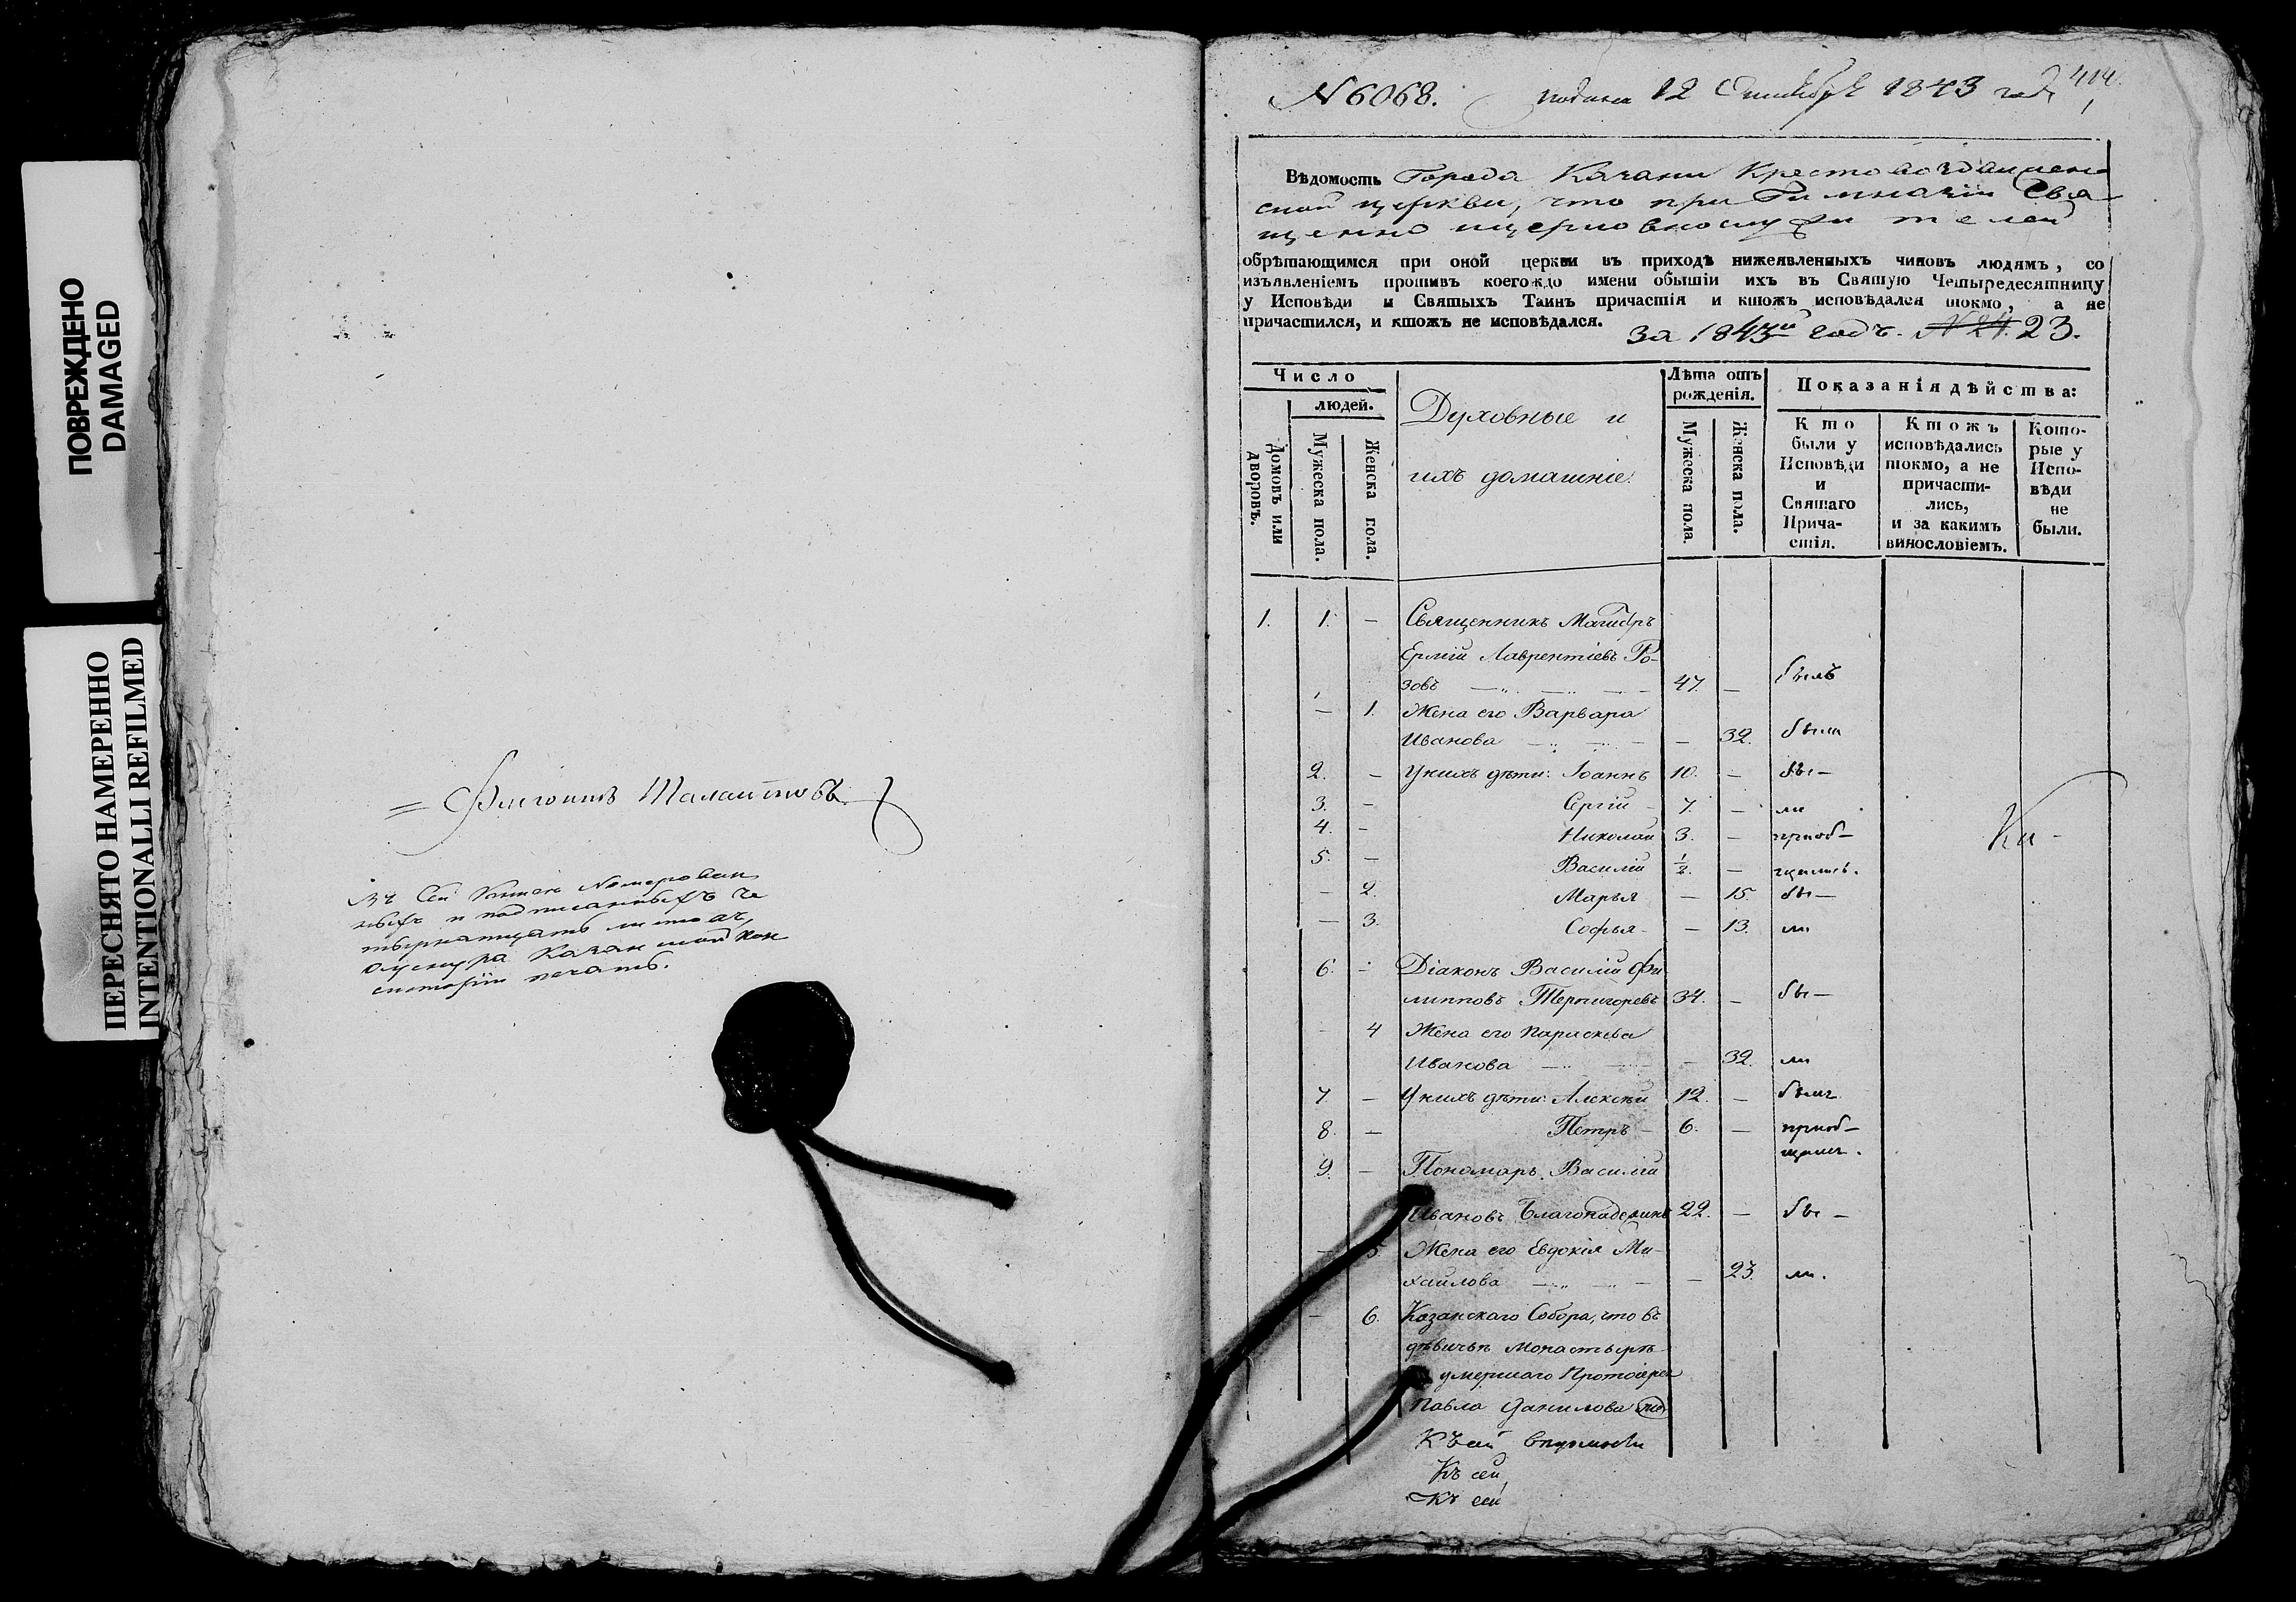 ПОВРЕЖДЕНО
DAMAGED
ПЕРЕСНЯТО НАМЕРЕННО
INTENTIONALLI REFILMED
сей Номерован
ныхъ и подписанныхъ че
тырнатцать листовъ,
Казанской кон
систоріи печать.
N 6068. 12 1843 года 414.
Вѣдомость Города Казани Крестовоздвижен
ской церкви, что при Гимназіи Свя
щенно церковнослужителей
обрѣтающимся при оной церкви въ приходѣ нижеявленныхъ чиновъ людямъ, со
изъявленіемъ противъ коегождо имени бытіи ихъ въ Святую Четыредесятницу
у Исповѣди и Святыхъ Таинъ причастія и ктожъ исповѣдался токмо, а не
причастился, и ктожъ не исповѣдался.
За 1843й годъ. N 24. 23.
Число
людей.
Домовъ или дворовъ.
Мужеска пола.
Женска пола.
Духовные и
ихъ домашніе.
Лѣта отъ
рожденія.
Мужеска пола.
Женска пола.
Показанія дѣйства:
Кто
были у
Исповѣди
и
Святаго
Прича-
стія.
Ктожъ
исповѣдались
токмо, а не
причасти-
лись,
и за какимъ
винословіемъ.
Кото-
рые у
Испо-
вѣди
не
были.
1. 1. — Священникъ Магистръ
Ермій Лаврентіевъ Ро-
зовъ 47. — былъ
— 1. Жена его Варвара
Иванова — 32. была
2. — У нихъ дѣти: Іоаннъ 10. — бы—
3. — Сергій 7. — ли
4. — Николай 3. — приоб—
5. — Василій ½. — щились.
— 2. Марья — 15. бы—
— 3. Софья — 13. ли
Ки-
6. — Діаконъ Василій Фи
липповъ Терпигоревъ 34. — бы—
— 4 Жена его Параскева
Иванова — 32. ли
7 — У нихъ дѣти: Алексѣй 12. — былъ
8. — Петръ 6. — приоб—
щенъ.
9. — Пономарь Василій
Ивановъ Благонадеждинъ 22. — бы—
— 5 Жена его Евдокія Ми-
хайлова — 23. ли.
— 6. Казанскаго Собора, что въ
дѣвичьѣ монастырѣ
умершаго Протоіерея
Павла Данилова
Къ сей
Къ сей
Къ сей